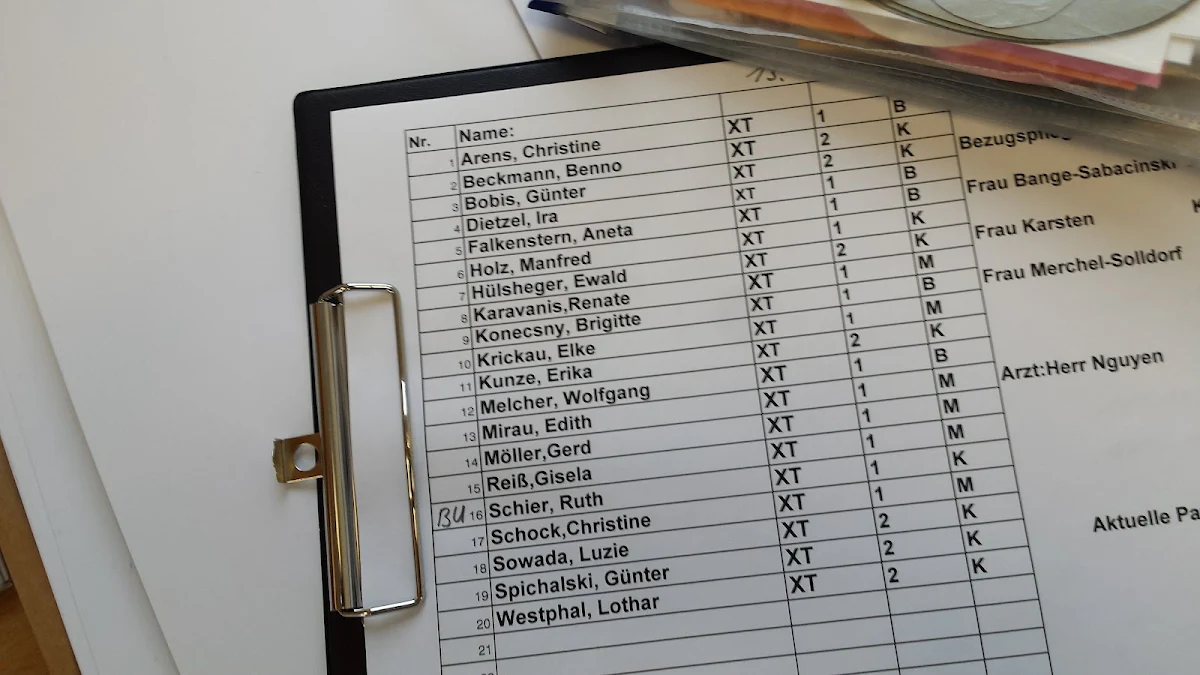 13.
Nr. Name:
1 Arens, Christine XT 1 B
2 Beckmann, Benno XT 2 K
3 Bobis, Günter XT 2 K
4 Dietzel, Ira XT 1 B
5 Falkenstern, Aneta XT 1 B Frau Bange-Sabacinski
6 Holz, Manfred XT 1 K
7 Hülsheger, Ewald XT 2 K Frau Karsten
8 Karavanis,Renate XT 1 M
9 Konecsny, Brigitte XT 1 B Frau Merchel-Solldorf
10 Krickau, Elke XT 1 M
11 Kunze, Erika XT 2 K
12 Melcher, Wolfgang XT 1 B
13 Mirau, Edith XT 1 M Arzt:Herr Nguyen
14 Möller,Gerd XT 1 M
15 Reiß,Gisela XT 1 M
BU 16 Schier, Ruth XT 1 K
17 Schock,Christine XT 1 M
18 Sowada, Luzie XT 2 K
19 Spichalski, Günter XT 2 K Aktuelle Pa
20 Westphal, Lothar XT 2 K
21